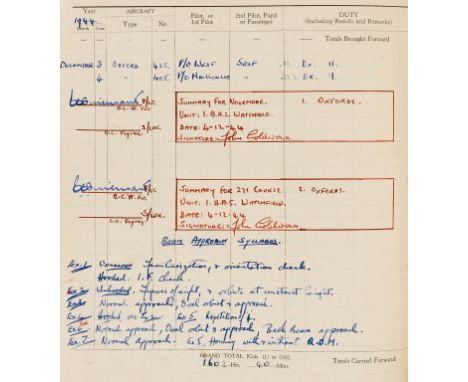 Year AIRCRAFT Pilot, or 2nd Pilot, Pupil DUTY
1944 Type No. 1st Pilot or Passenger (Including Results and Remarks)
Month Date
Totals Brought Forward
DECEMBER 3 OXFORD 425. P/O WEST SELF DX. 11.
4 " 405. P/O " DX. 9.
SUMMARY FOR NOVEMBER. 1. OXFORDS.
UNIT: 1. B.A.S. WATCHFIELD.
DATE: 4-12-44
SIGNATURE: John Goldsworn
SUMMARY FOR 271 COURSE. 1. OXFORDS.
UNIT. 1. B.A.S. WATCHFIELD.
DATE: 4-12-44
SIGNATURE: John
BEAM APPROACH SYLLABUS.
Ex. 1 Unhooded. Familiarization, & orientation check.
Hooded. I.F. check
Ex. Unhooded. Figures of eight, & orbits at constant height.
Ex. Normal approach, Dual orbit & approach.
Ex. Hooded as Ex. 2 Ex. 5. Repetition of
Ex. 6 Normal approach, Dual orbit & approach, Back beam approach.
Ex. 7 Normal approach. Ex 8. Homing with & without Q.D.M.
GRAND TOTAL [Cols. (1) to (10)] Totals Carried Forward
160 Hrs. 40 Mins.